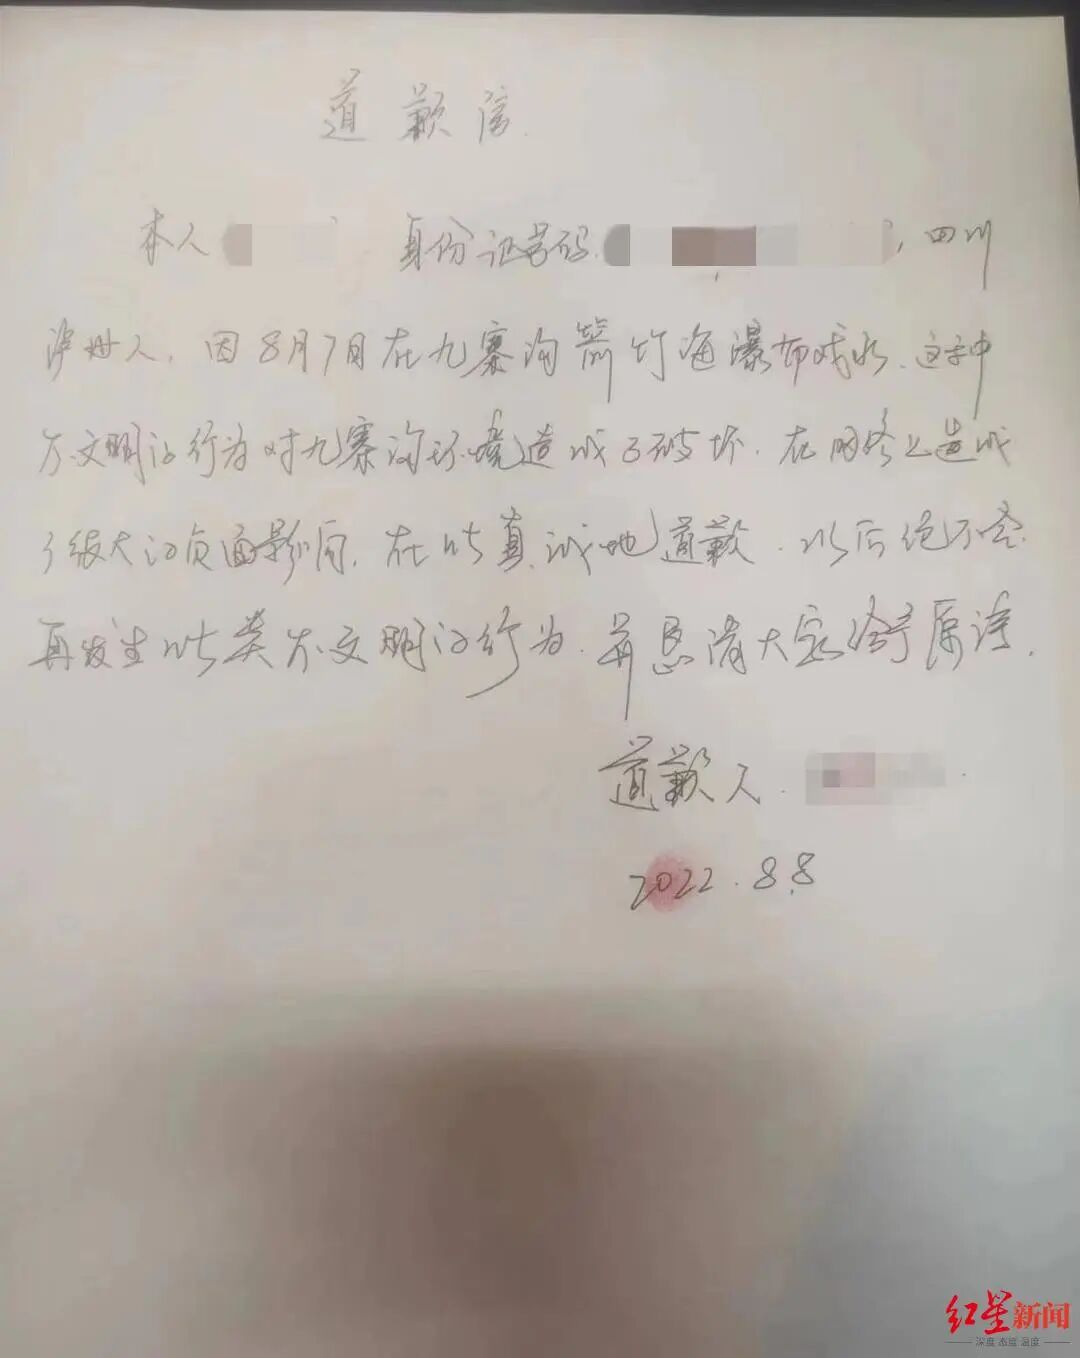 道歉信.
本人 身份证号码 , 四川
泸州人, 因8月7日在九寨沟箭竹海瀑布戏水、这种
不文明的行为对九寨沟环境造成了破坏. 在网络上造成
了极大的负面影响, 在此真诚地道歉. 以后绝不会
再发生此类不文明的行为. 并恳请大家给予原谅.
道歉人.
2022.8.8
红星新闻
深度 态度 温度